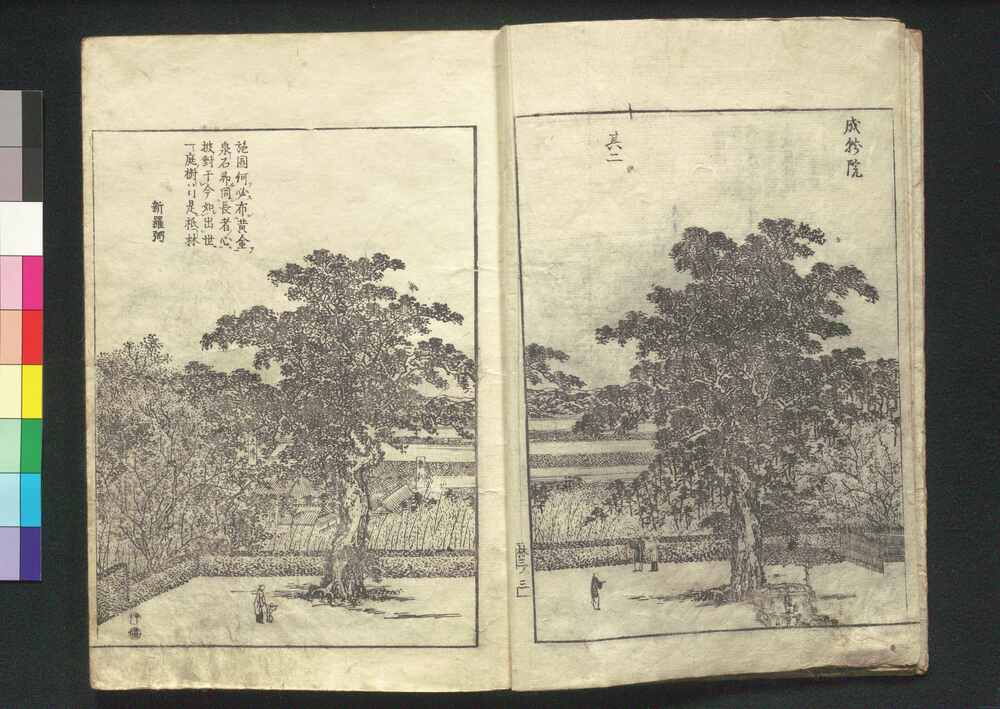 成就院
其二
施園何必布黄金
泉石弟同長者心
披對于今如出世
一庭樹〻是祇林
新羅彌
三
竹僊